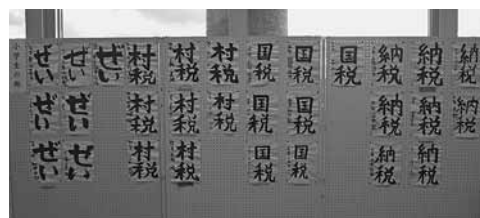 小学生の部
ぜい
ぜい
ぜい
村税
村税
村税
国税
国税
国税
納税
納税
納税
ぜい
ぜい
村税
村税
村税
国税
国税
納税
納税
納税
ぜい
ぜい
村税
村税
国税
国税
納税
納税